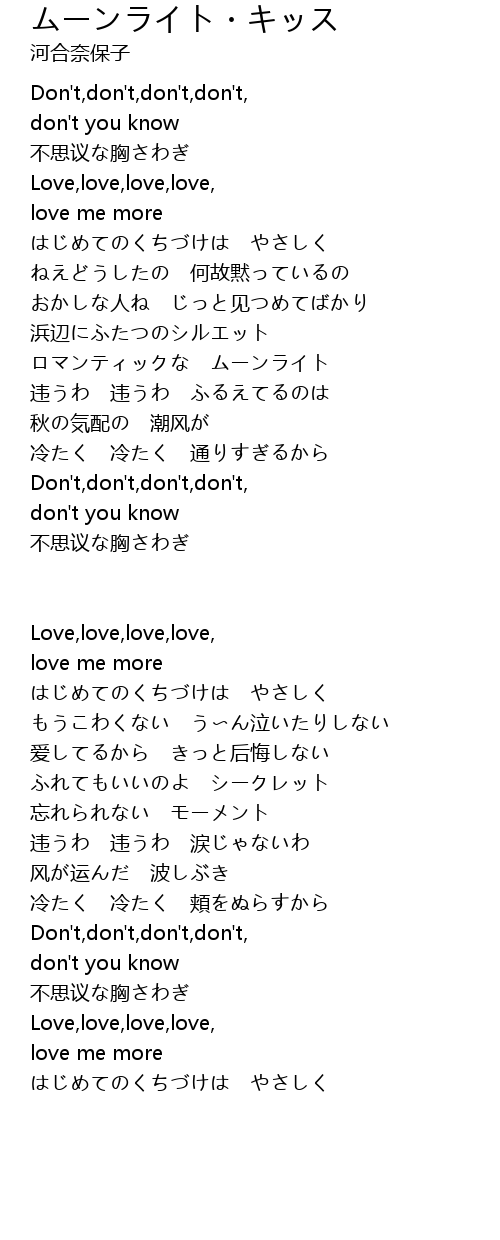 ムーンライト・キッス
河合奈保子
Don't,don't,don't,don't,
don't you know
不思议な胸さわぎ
Love,love,love,love,
love me more
はじめてのくちづけは　やさしく
ねえどうしたの　何故黙っているの
おかしな人ね　じっと见つめてばかり
浜辺にふたつのシルエット
ロマンティックな　ムーンライト
违うわ　违うわ　ふるえてるのは
秋の気配の　潮风が
冷たく　冷たく　通りすぎるから
Don't,don't,don't,don't,
don't you know
不思议な胸さわぎ
Love,love,love,love,
love me more
はじめてのくちづけは　やさしく
もうこわくない　う〜ん泣いたりしない
爱してるから　きっと后悔しない
ふれてもいいのよ　シークレット
忘れられない　モーメント
违うわ　违うわ　涙じゃないわ
风が运んだ　波しぶき
冷たく　冷たく　頬をぬらすから
Don't,don't,don't,don't,
don't you know
不思议な胸さわぎ
Love,love,love,love,
love me more
はじめてのくちづけは　やさしく